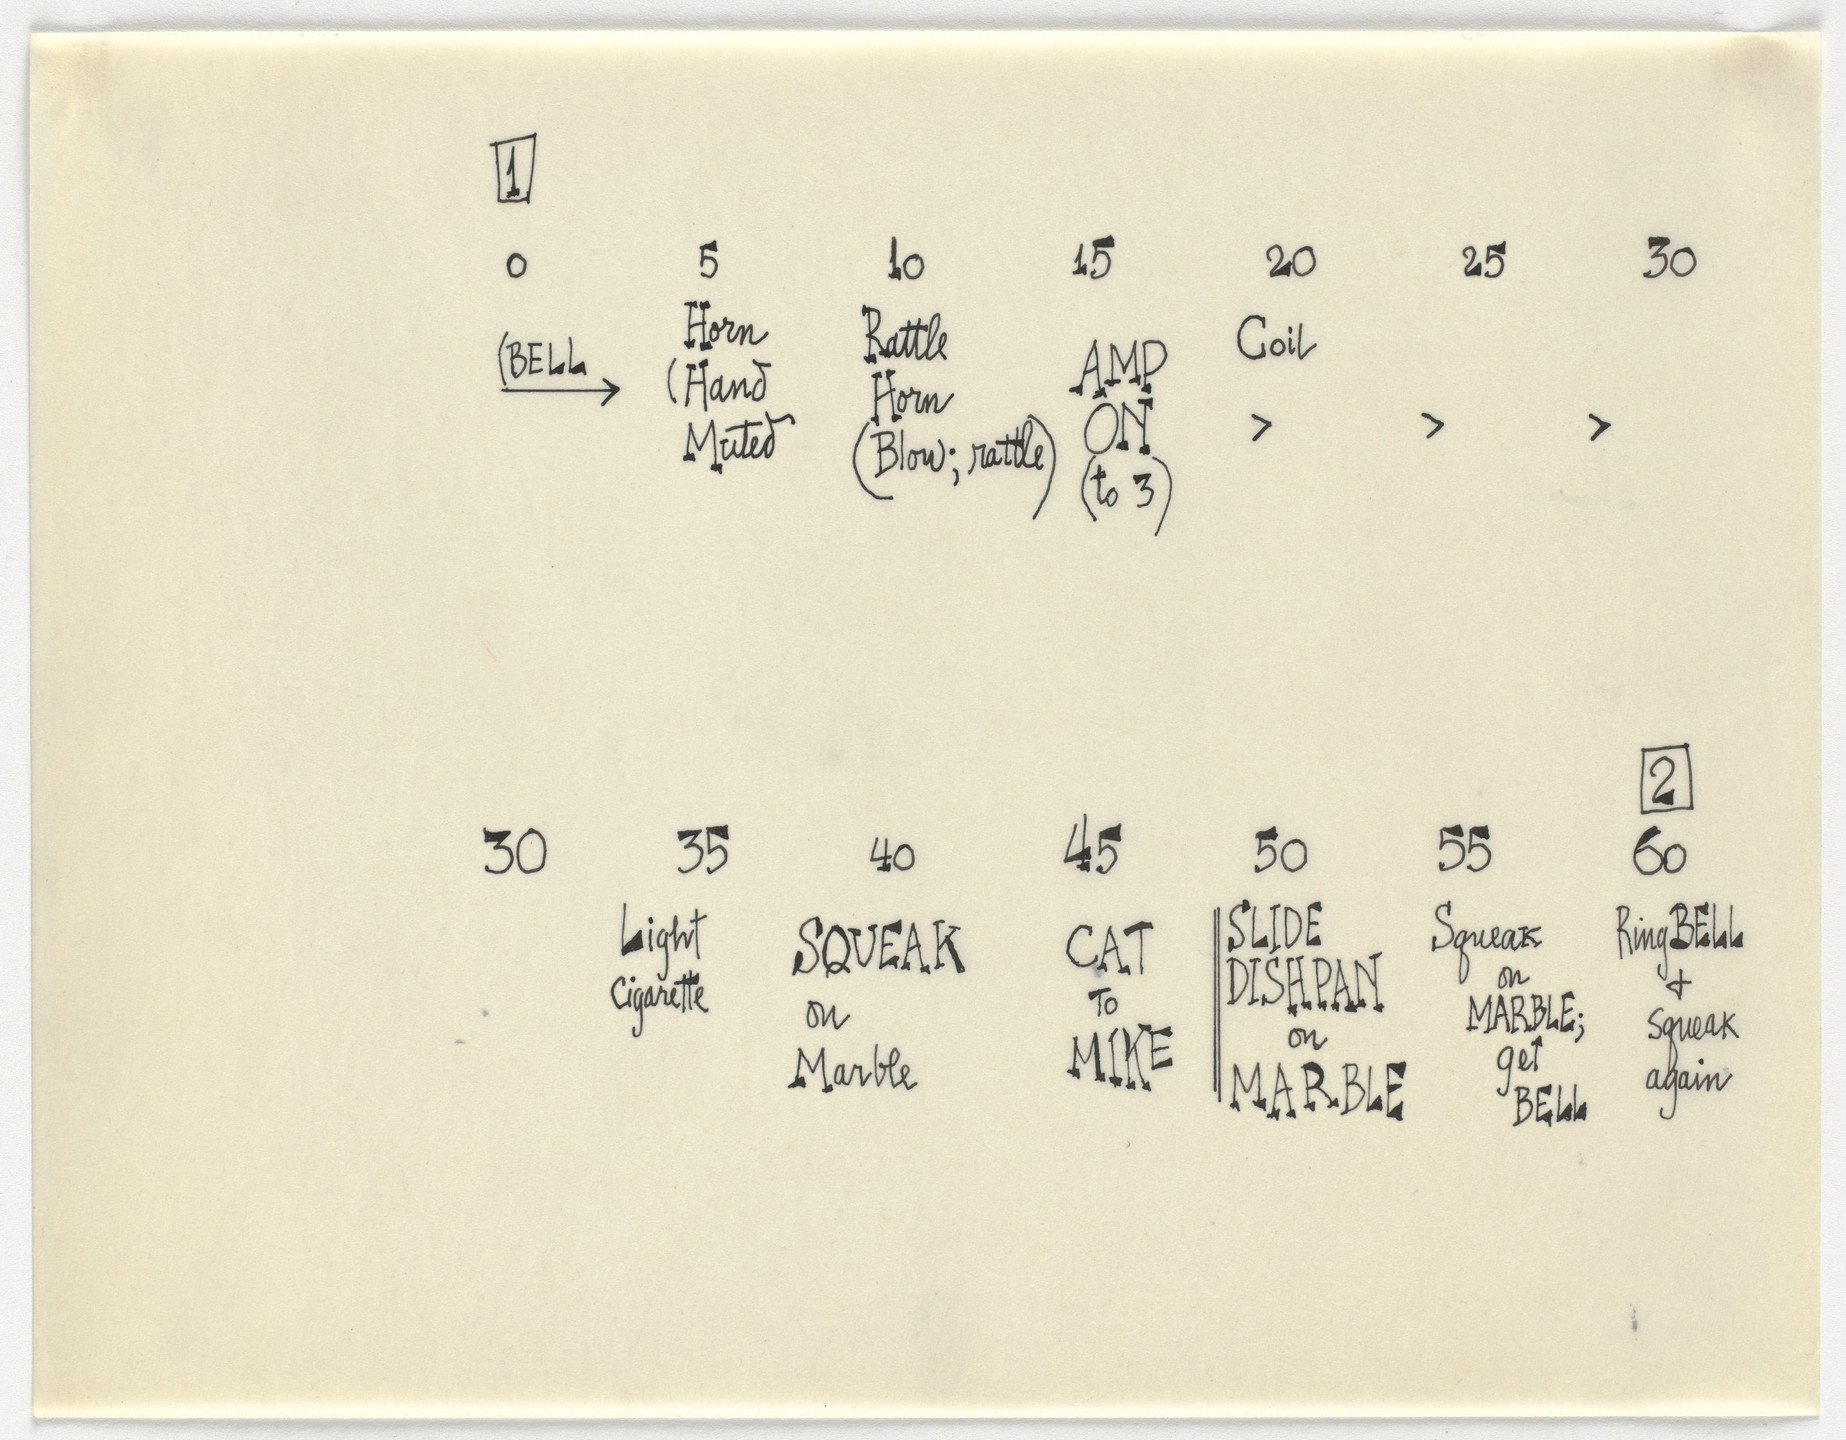 1
0 5 10 15 20 25 30
(BELL
Horn
(Hand
Muted
Rattle
Horn
(Blow; rattle)
AMP
ON
(to 3)
Coil
> > >
2
30 35 40 45 50 55 60
Light
Cigarette
SQUEAK
on
Marble
CAT
TO
MIKE
SLIDE
DISHPAN
on
MARBLE
Squeak
on
MARBLE;
get
BELL
Ring BELL
+
squeak
again